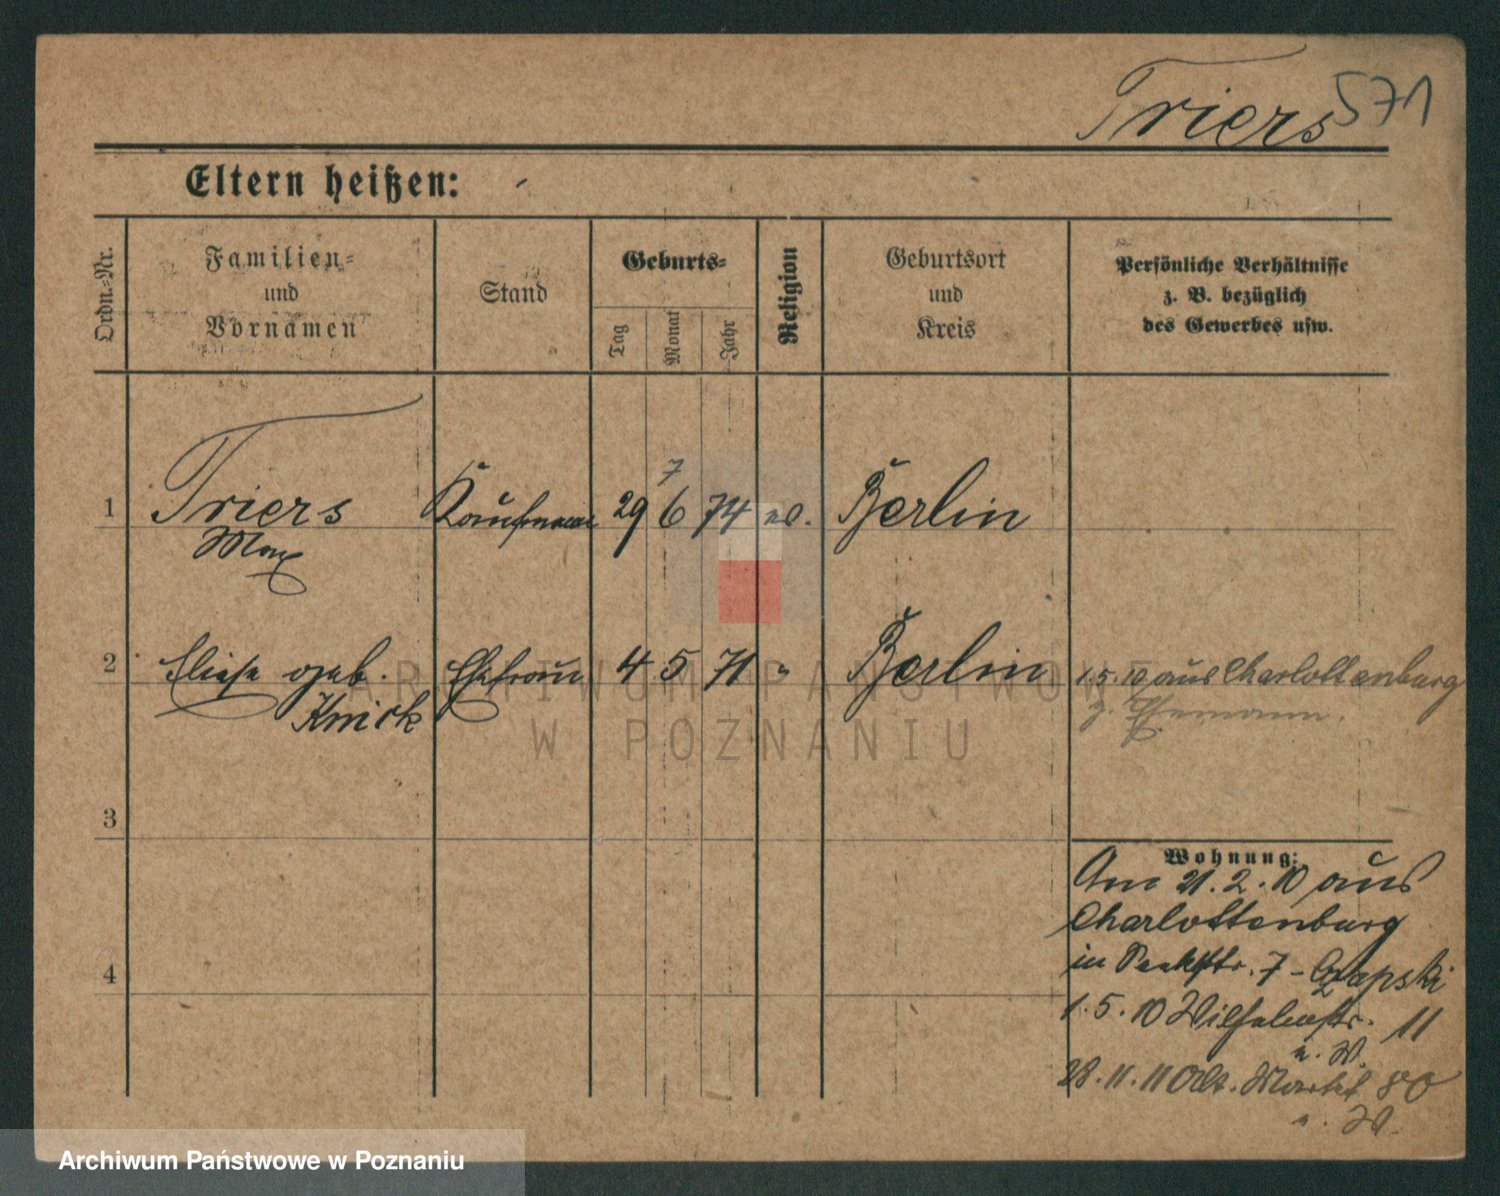 Triers 571
Eltern heißen:
Ordn.-Nr.
Familien-
und
Vornamen
Stand
Geburts-
Tag
Monat
Jahr
Religion
Geburtsort
und
Kreis
Persönliche Verhältnisse
z. B. bezüglich
des Gewerbes usw.
7
1 Triers Kaufmann 29 6 74 Berlin
Max
2 Eliese geb. Ehefrau 4 5 71 " Berlin 1.5.10 aus Charlottenburg
Knirk z. Ehemann.
3
4
Wohnung:
Am 21.2.10 aus
Charlottenburg
in 7 - Czapski
1.5.10 Wilhelmstr. 11
a. W.
28.11.11 Alt. Markt 80
a. W.
ARCHIWUM PAŃSTWOWE
W POZNANIU
Archiwum Państwowe w Poznaniu